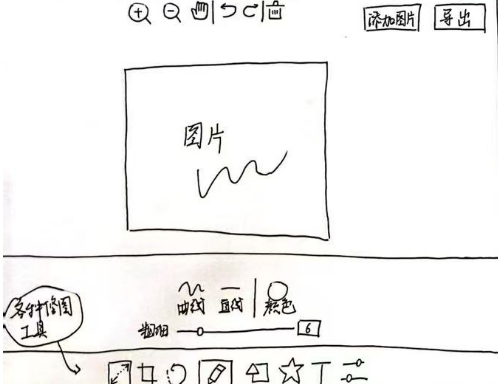 添加图片 导出
图片
曲线 直线 颜色
粗细 6
各种修图
工具
T